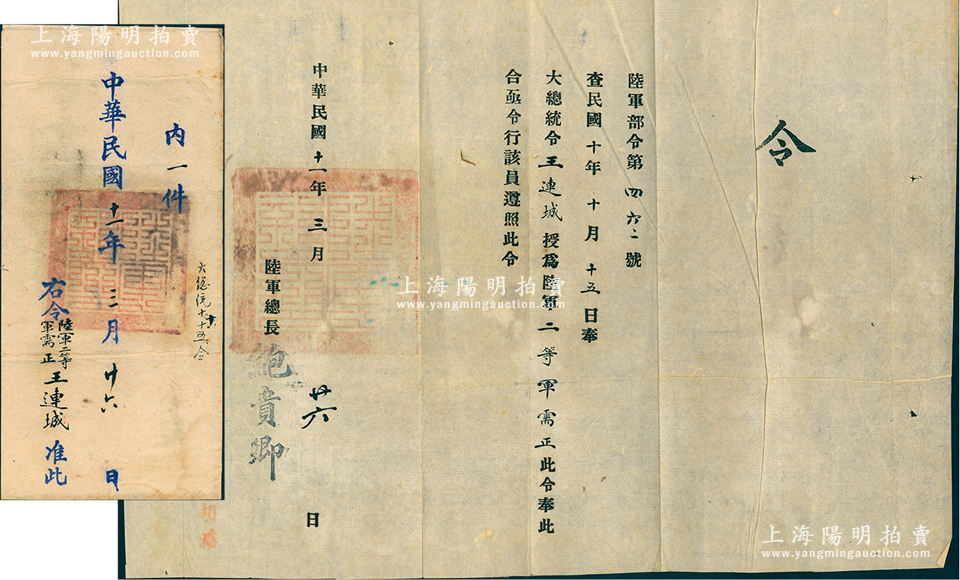 上海陽明拍賣
www.yangmingauction.com
令
陸軍部令第四六二號
查民國十年十月十五日奉
大總統令王連城授爲陸軍二等軍需正此令奉此
合亟令行該員遵照此令
陸軍總長鮑貴卿
中華民國十一年三月廿六日
內一件
中華民國十一年三月廿六日
右令陸軍二等軍需正王連城准此
上海陽明拍賣
www.yangmingauction.com
上海陽明拍賣
www.yangmingauction.com